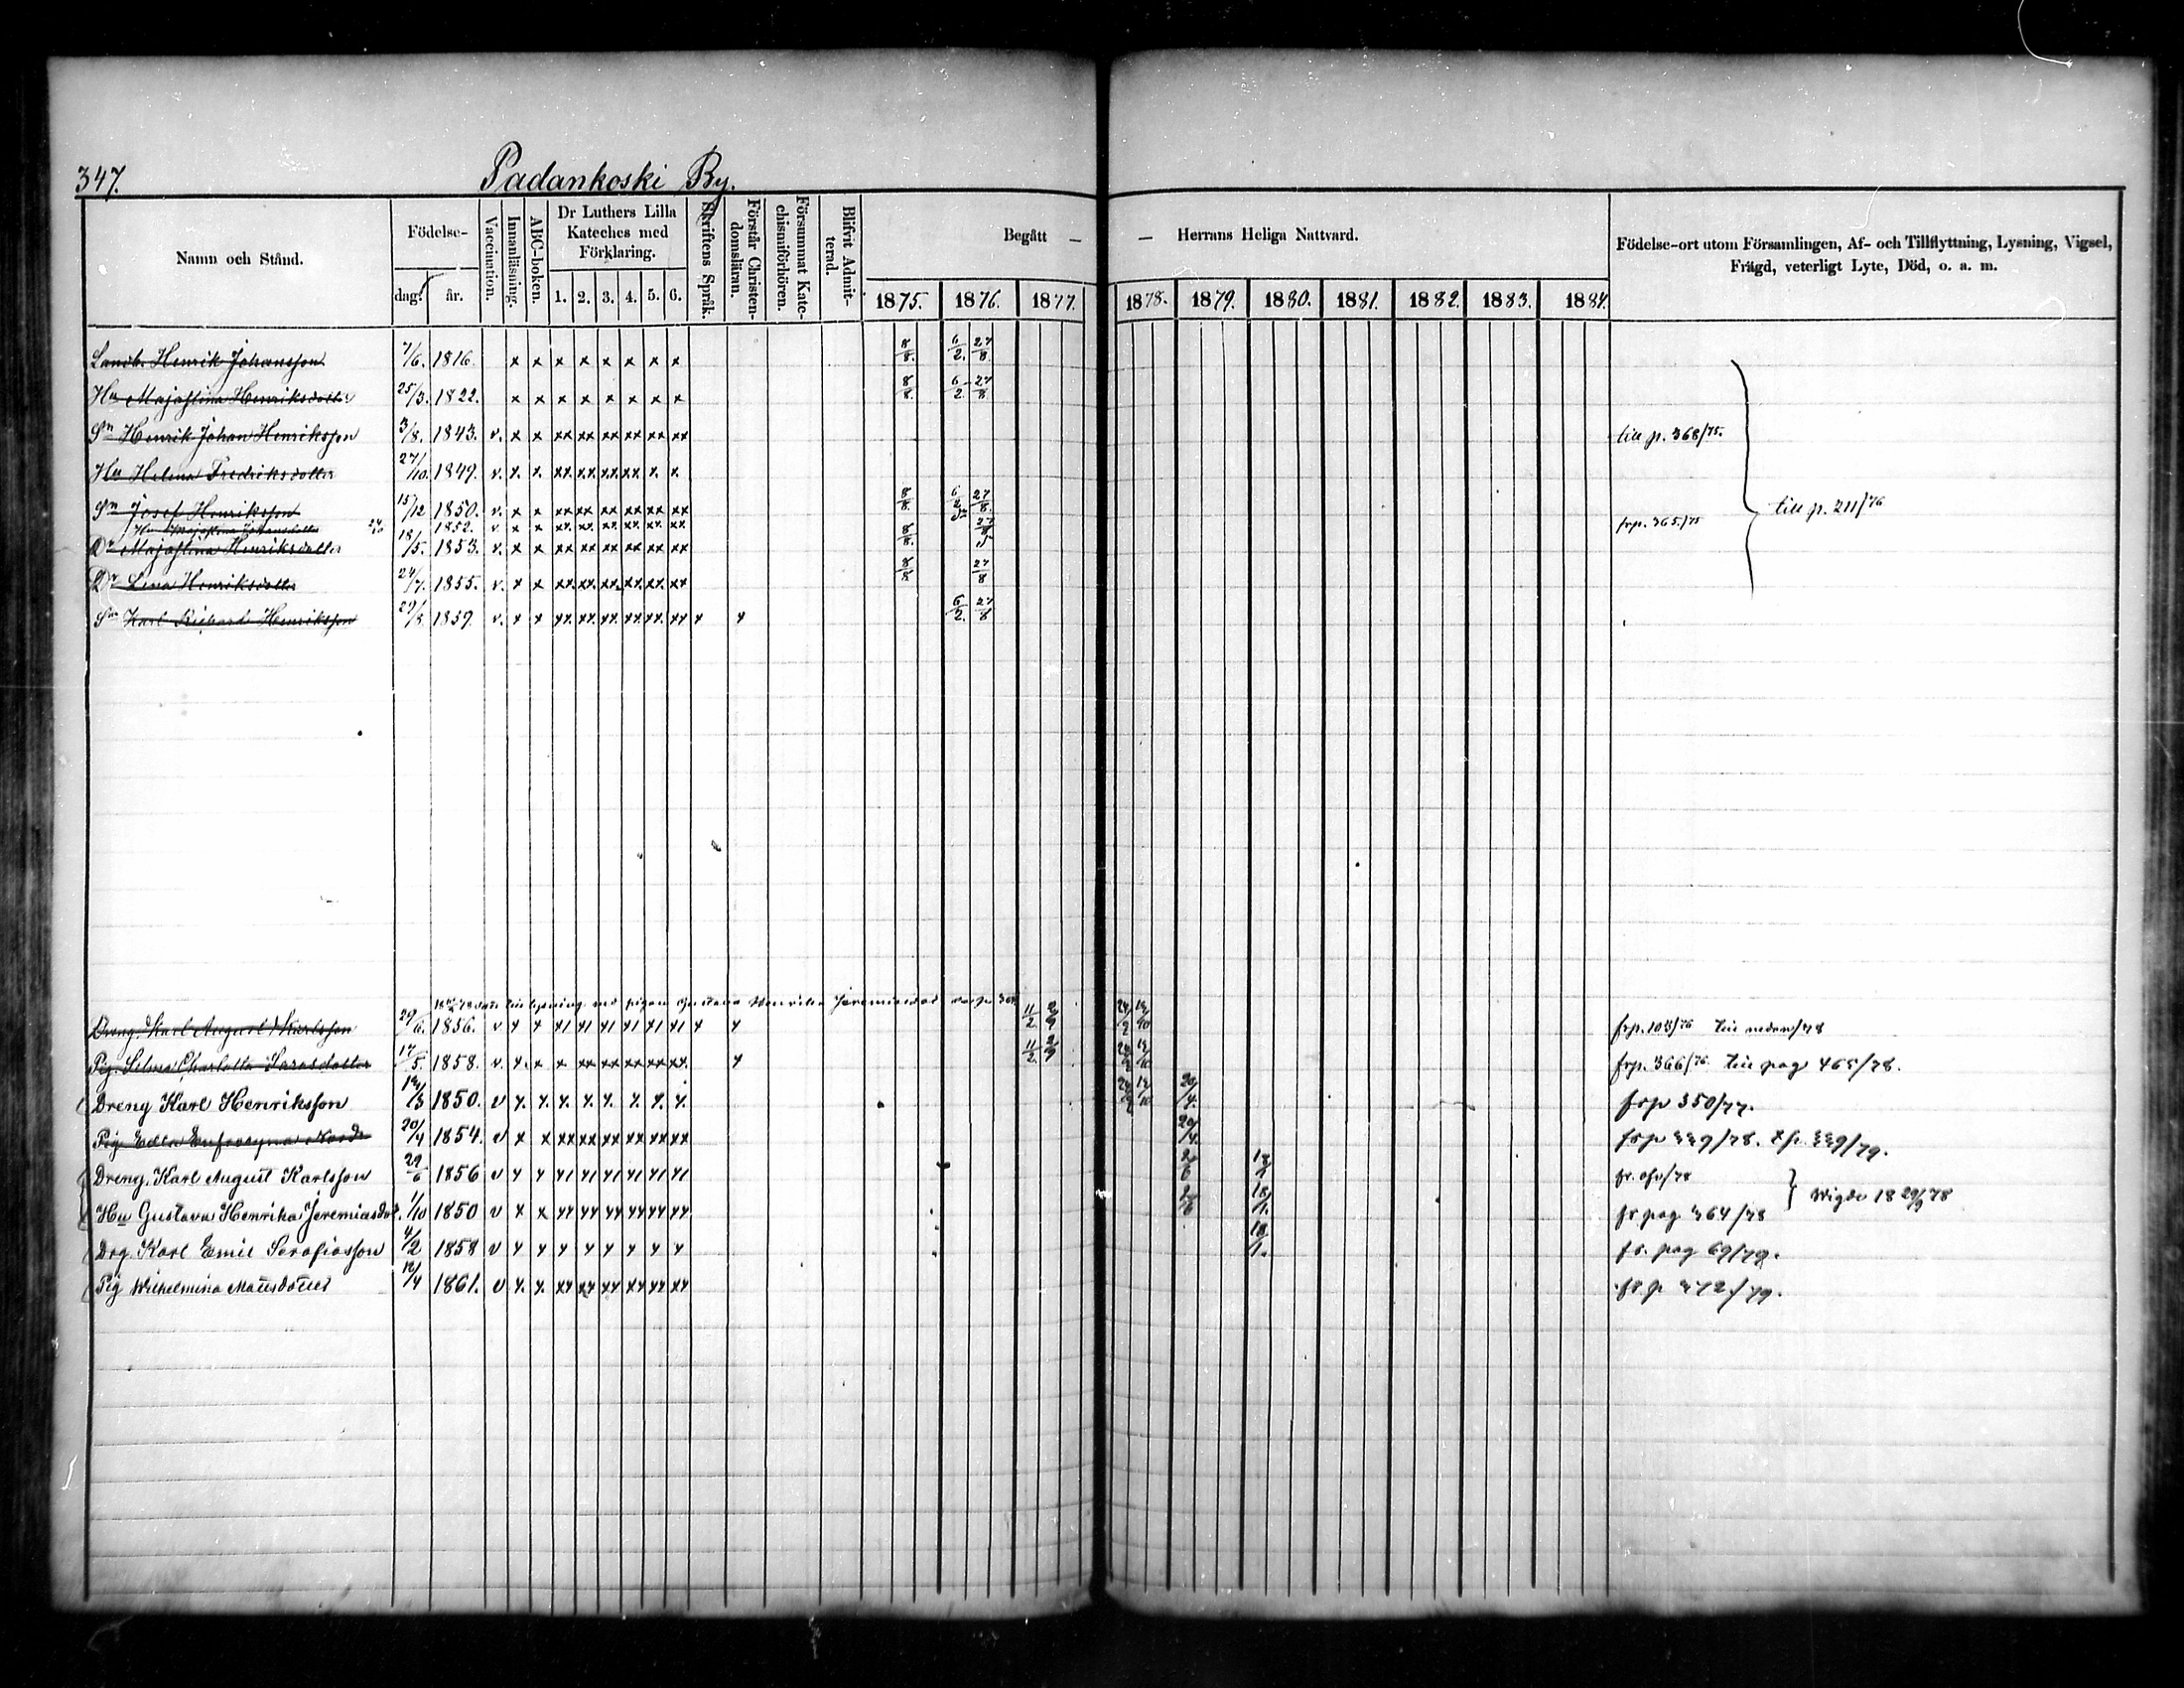 347.
Padankoski By.
Namn och Stånd.
Födelse-
dag.
år.
Vaccination.
Innanläsning.
ABC-boken.
Dr Luthers Lilla Kateches med Förklaring.
1. 2. 3. 4. 5. 6.
Skriftens Språk.
Förstår Christendomsläran.
Försummat Katechismiförhören.
Blifvit Admitterad.
Begått — — Herrans Heliga Nattvard.
1875. 1876. 1877. 1878. 1879. 1880. 1881. 1882. 1883. 1884.
Födelse-ort utom Församlingen, Af- och Tillflyttning, Lysning, Vigsel, Frägd, veterligt Lyte, Död, o. a. m.
Landb. Henrik Johansson 7/6. 1816. x x x x x x x x 8/8. 6/2. 27/8.
Hu Majastina Henriksdotter 25/3. 1822. x x x x x x x x 8/8. 6/2. 27/8
Sn Henrik Johan Henriksson 3/8. 1843. v. x x xx xx xx xx xx xx till p. 368/75.
Hu Helena Fredriksdotter 27/10. 1849. v. x. x xx. xx. xx. xx x. x
Sn Josef Henriksson 15/12 1850. v. x x xx xx xx xx xx xx 8/8. 6/2 27/8. till p. 211/76
1852. v. x x xx. xx. xx. xx. xx. xx. frp. 365/75
Dr Majastina Henriksdotter 18/5. 1853. v. x x xx xx xx xx xx xx 8/8.
Dr Lina Henriksdotter 24/7. 1855. v. x x xx. xx. xx. xx. xx. xx 8/8 27/8
Sn Karl Richard Henriksson 29/8. 1859. v. x x xx. xx. xx. xx. xx. xx x x 6/2. 27/8
Dreng. Karl August Karlsson 29/6. 1856. v 11/2. frp. 103/76
Pig. Selma Charlotta 17/5. 1858. v. 11/2. frp. 366/76. till pag 465/78.
Dreng Karl Henriksson 1850. v 20/4. frp 350/77.
Pig. 20/4 1854. v x x xx xx xx xx xx xx 20/4.
Dreng. Karl August Karlsson 29/6 1856 v 18/1 Vigde 18 29/9 78
Hu Gustava Henrika Jeremiasdot. 1/10 1850 v x x 18/1. fr pag 364/78
Drg. Karl Emil Serafiasson 4/2 1858 v 18/1. fr. pag 69/79.
Pig Wilhelmina Mattsdotter 12/4 1861. v